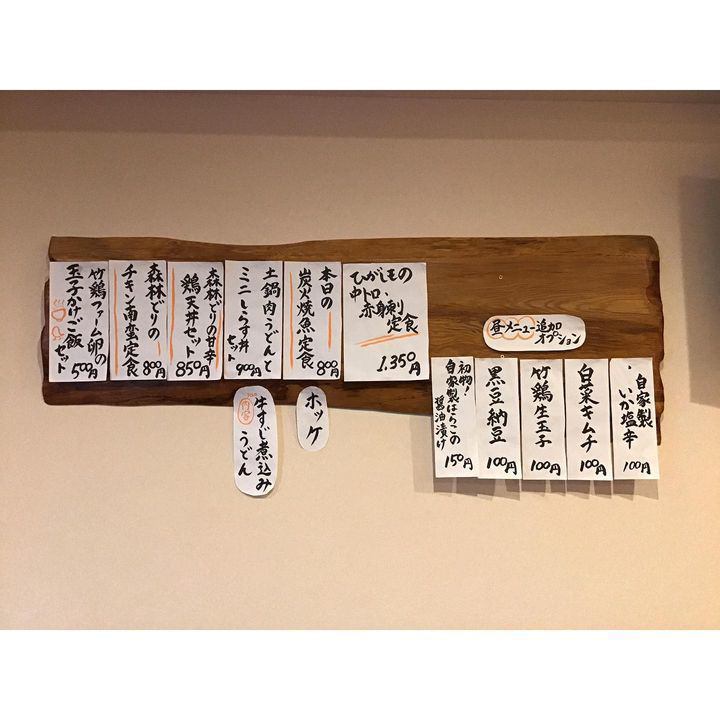 ひがしもの
中トロ・
赤身刺
定食
1,350円
本日の
炭火焼魚定食
800円
ホッケ
土鍋肉うどんと
ミニしらす丼
セット
900円
牛すじ煮込み
うどん
森林どりの甘辛
鶏天丼セット
850円
森林どりの
チキン南蛮定食
800円
竹鶏ファーム卵の
玉子かけご飯
セット
500円
昼メニュー追加
オプション
自家製
いか塩辛
100円
白菜キムチ
100円
竹鶏生玉子
100円
黒豆納豆
100円
初物!
自家製はらこの
醤油漬け
150円